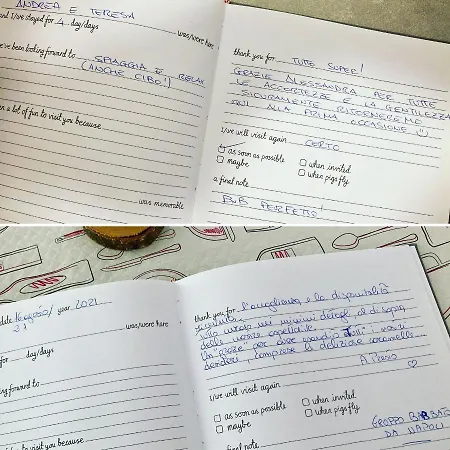 ANDREA E TERESA
and I/we stayed for 4 day/days
was/were here
we've been looking forward to SPIAGGIA E RELAX
(ANCHE CIBO!)
a lot of fun to visit you because
was memorable
thank you for TUTTO SUPER!
GRAZIE ALESSANDRA PER TUTTE
LE ACCORTEZZE E LA GENTILEZZA
SICURAMENTE RITORNEREMO
QUI ALLA PRIMA OCCASIONE
I/we will visit again CERTO
as soon as possible
when invited
maybe
when pigs fly
a final note
B&B PERFETTO!
date year 2021
was/were here
for day/days
forward to
to visit you because
thank you for l'accoglienza e la disponibilità
cura nei minimi dettagli al di sopra
delle nostre
desideri, comprese le deliziose caramelle
A Presto
I/we will visit again
as soon as possible
when invited
maybe
when pigs fly
GRUPPO
DA NAPOLI
final note